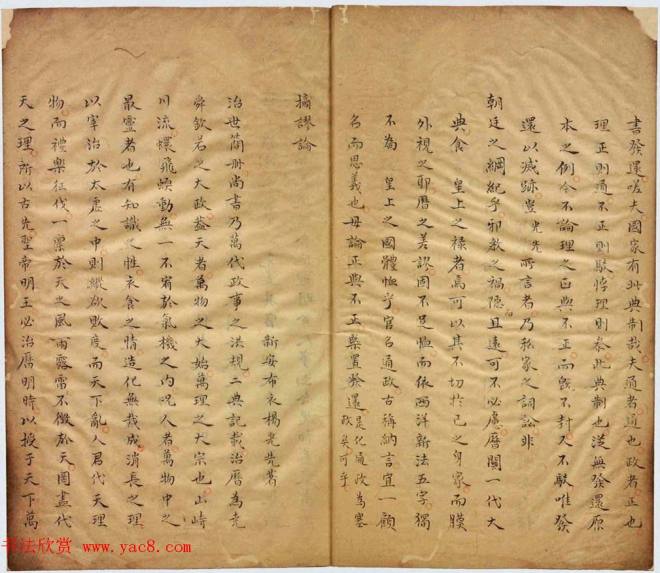 書發還嗟夫國家有此典制哉夫通者通也政者正也
理正則通不正則駁悖理則參此典制也從無發還原
本之例今不論理之正與不正而旣不封又不駁唯發
還以滅跡豈光先所言者乃私家之詞訟非
朝廷之綱紀乎邪教之禍隱且遠可不必慮曆關一代大
典食 皇上之祿者焉可以其不切于己之身家而膜
外視之耶曆之差謬固不足恤而依西洋新法五字獨
不為 皇上之國體恤乎官名通政古稱納言宜一顧
名而思義也毋論正與不正槩置發還是化通政為塞
政矣可乎
摘謬論
新安布衣楊光先著
治世簡冊尚書乃萬代政事之洪規二典記載治曆為堯
舜欽若之大政蓋天者萬物之大始萬理之大宗也山峙
川流蠉飛蝡動無一不宥於氣機之內况人者萬物中之
最靈者也有知識之性衣食之情造化無裁成消長之理
以宰治於太虛之中則縱欲敗度而天下亂人君代天理
物而禮樂征伐一稟於天之風雨露雷不徵於天罔盡代
天之理所以古先聖帝明王必治曆明時以授于天下萬
书法欣赏→www.yac8.com